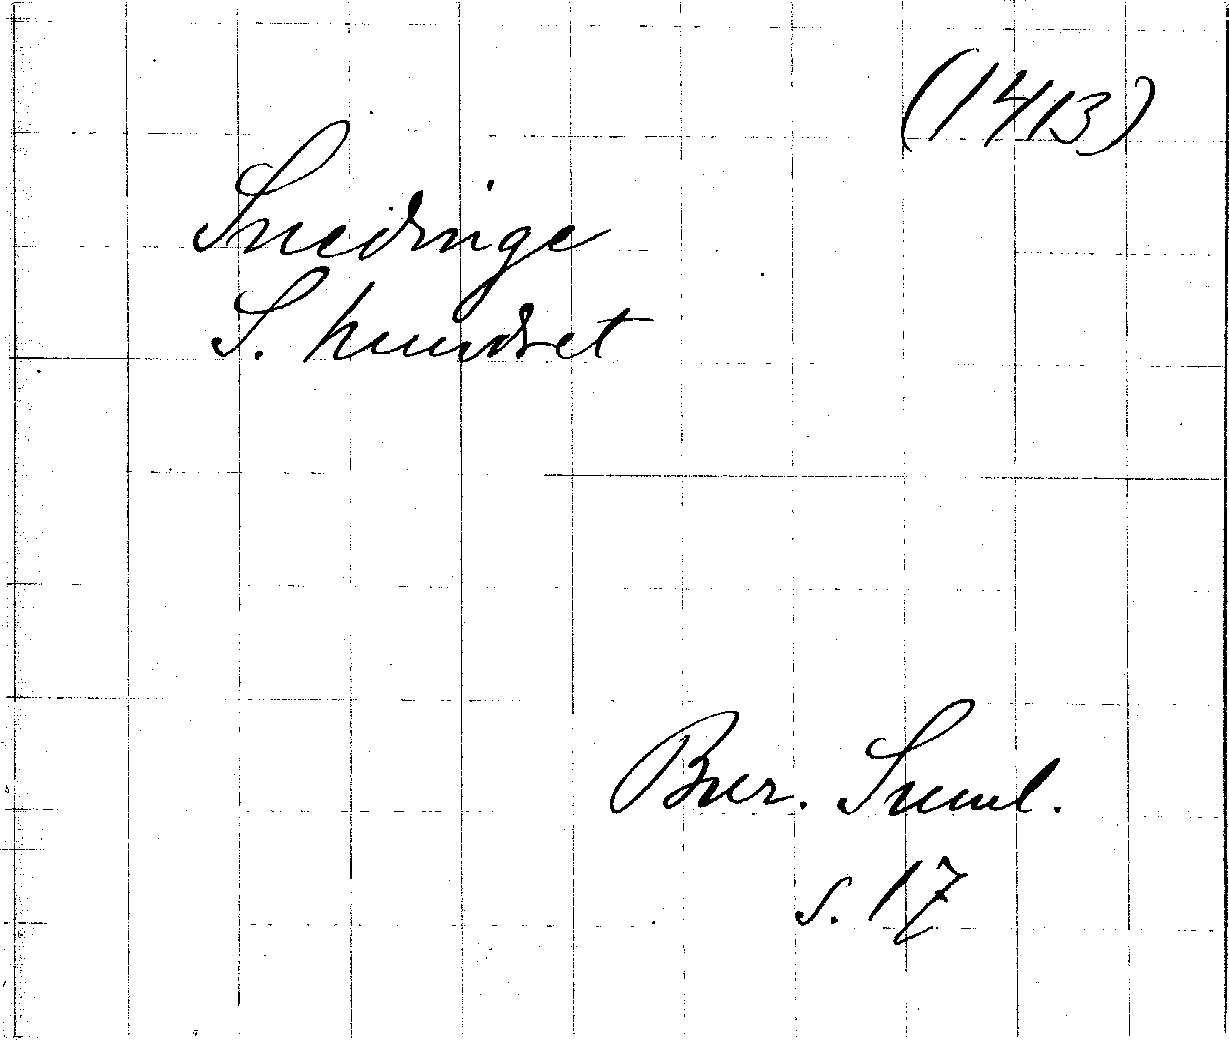 (1413)
Snedringe
S. hundret
Bur. Suml.
s. 17